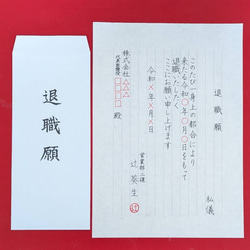 退職願
退職願
私儀
このたび一身上の都合により
来たる令和○年○月○日をもって
退職いたしたく
ここにお願い申し上げます
令和×年×月×日
営業部二課
辻葵生
株式会社△△△
代表取締役
□□□□殿